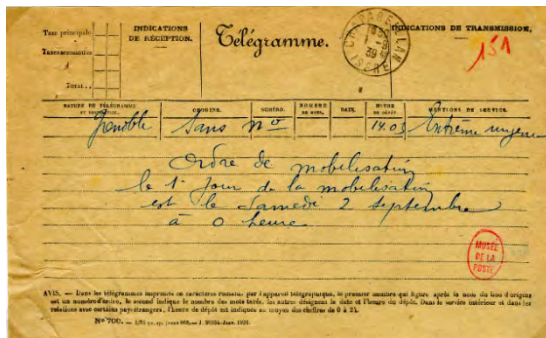 Taxe principale
Taxes accessoires
Total..
INDICATIONS
DE RÉCEPTION.
Télégramme.
INDICATIONS DE TRANSMISSION.
151
39
ISÈRE
NATURE DU TÉLÉGRAMME
ORIGINE.
NUMÉRO.
NOMBRE
DE MOTS.
DATE.
HEURE
DE DÉPÔT.
MENTIONS DE SERVICE.
Grenoble Sans no 14.05 Extrême urgence
Ordre de mobilisation
le 1er Jour de la mobilisation
est le Samedi 2 Septembre
à 0 heure
MUSÉE
DE LA
POSTE
AVIS. — Dans les télégrammes imprimés en caractères romains par l'appareil télégraphique, le premier nombre qui figure après le nom du lieu d'origine
est un numéro d'ordre, le second indique le nombre des mots taxés, les autres désignent la date et l'heure du dépôt. Dans le service intérieur et dans les
relations avec certains pays étrangers, l'heure de dépôt est indiquée au moyen des chiffres de 0 à 24.
No 700.